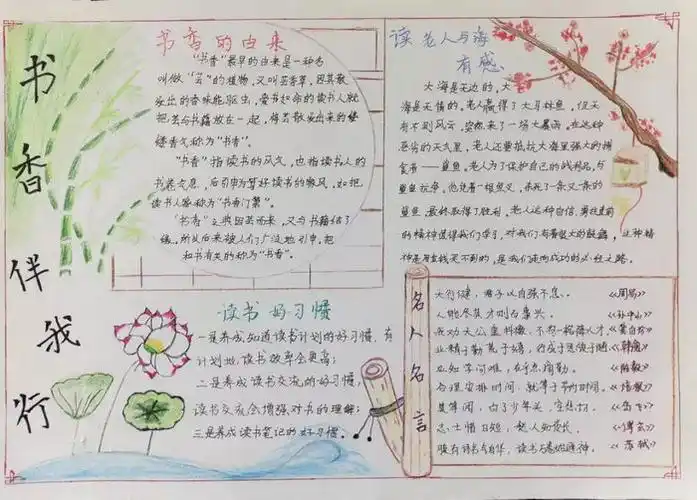 书香伴我行
书香的由来
"书香"最早的由来是一种名
叫做"芸"的植物,又叫芸香草,因其散
发出的香味能驱虫,爱书如命的读书人就
把芸与书籍放在一起,将芸散发出来的缕
缕香气称为"书香"。
"书香"指读书的风气,也指读书人的
读书人家称为"书香门第"。
"书香"之典因芸而来,又与书籍结了
缘,所以后来被人们广泛地引申,把
和书有关的称为"书香"。
读老人与海
有感
大海是无边的,大
海是无情的,老人赢得了大马林鱼,但天
有不测风云,突然来了一场大暴雨,在这种
恶劣的天气里,老人还要抵抗大海里强大的捕
食者——鲨鱼,老人为了保护自己的战利品,与
鲨鱼抗争,他凭着一根鱼叉,杀死了一条又一条的
鲨鱼,最终取得了胜利,老人这种自信,勇往直前
的精神值得我们学习,对我们有着很大的鼓舞,这种精
神是用金钱买不到的,是我们走向成功的必经之路。
读书好习惯
一是养成知道读书计划的好习惯,有
计划地读书效率会更高;
二是养成读书交流的好习惯,
读书交流会增强对书的理解;
三是养成读书笔记的好习惯。
名人名言
天行健,君子以自强不息。 《周易》
人能尽其才则百事兴。 《孙中山》
我劝天公重抖擞,不拘一格降人才。《龚自珍》
业精于勤荒于嬉,行成于思毁于随。《韩愈》
合理安排时间,就等于节约时间。《培根》
莫等闲,白了少年头,空悲切。《岳飞》
志士惜日短,愁人知夜长。 《傅玄》
腹有诗书气自华,读书万卷始通神。《苏轼》